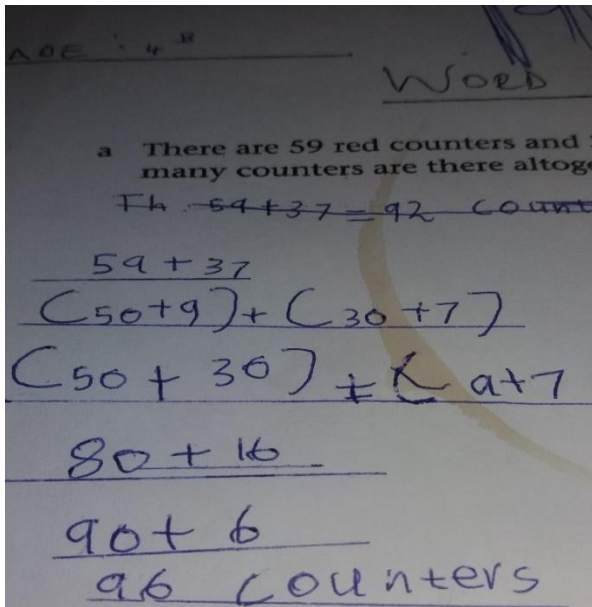 AGE : 4 B
WORD
a There are 59 red counters and
many counters are there altoge
Th 59+37=92 count
59 + 37
(50+9)+(30+7)
(50+30)+(9+7
80+16
90+6
96 counters